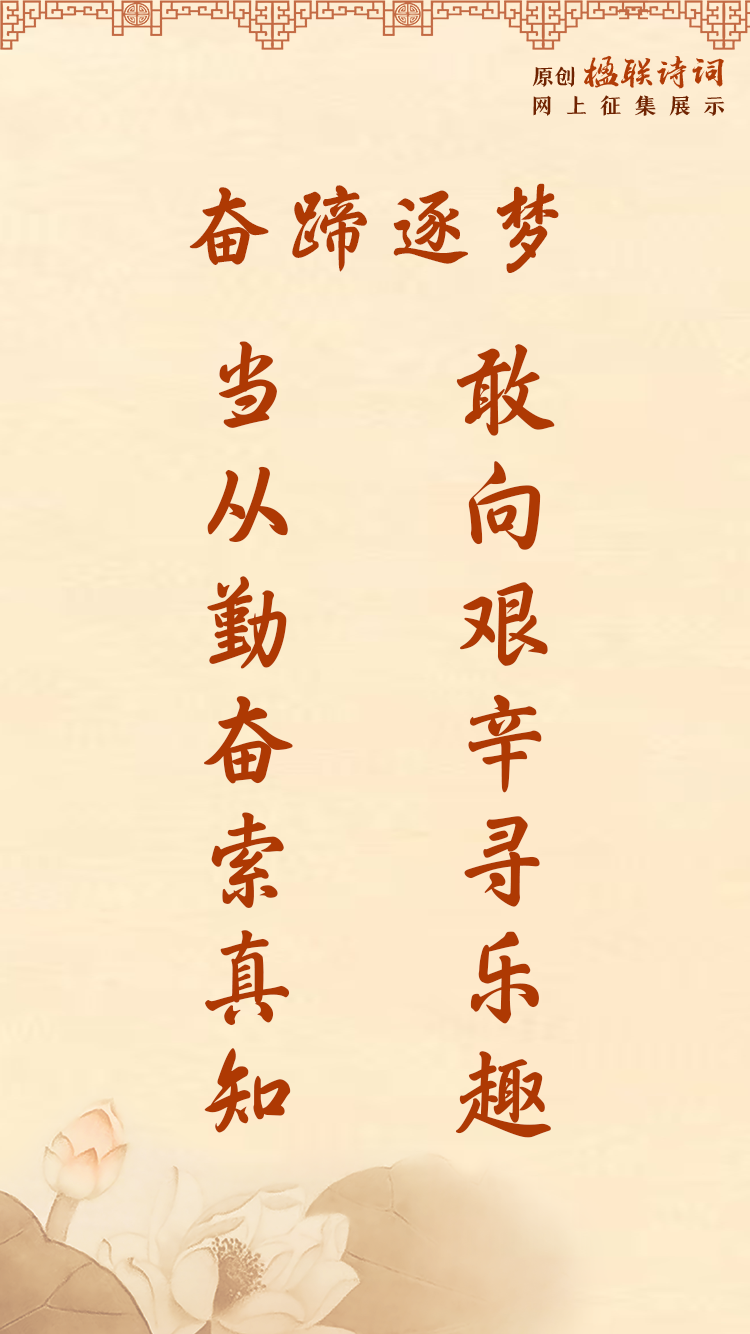 原创 楹联诗词
网上征集展示
奋蹄逐梦
敢向艰辛寻乐趣
当从勤奋索真知